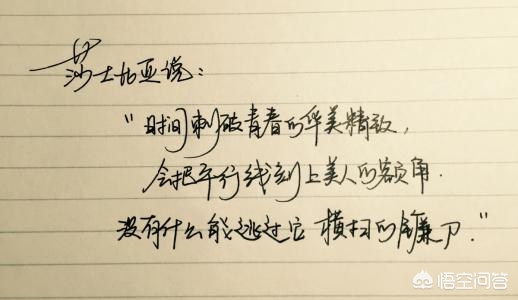 莎士比亚说：
“时间刺破青春的华美精致，
会把平行线刻上美人的额角.
没有什么能逃过它横扫的镰刀.”
悟空问答